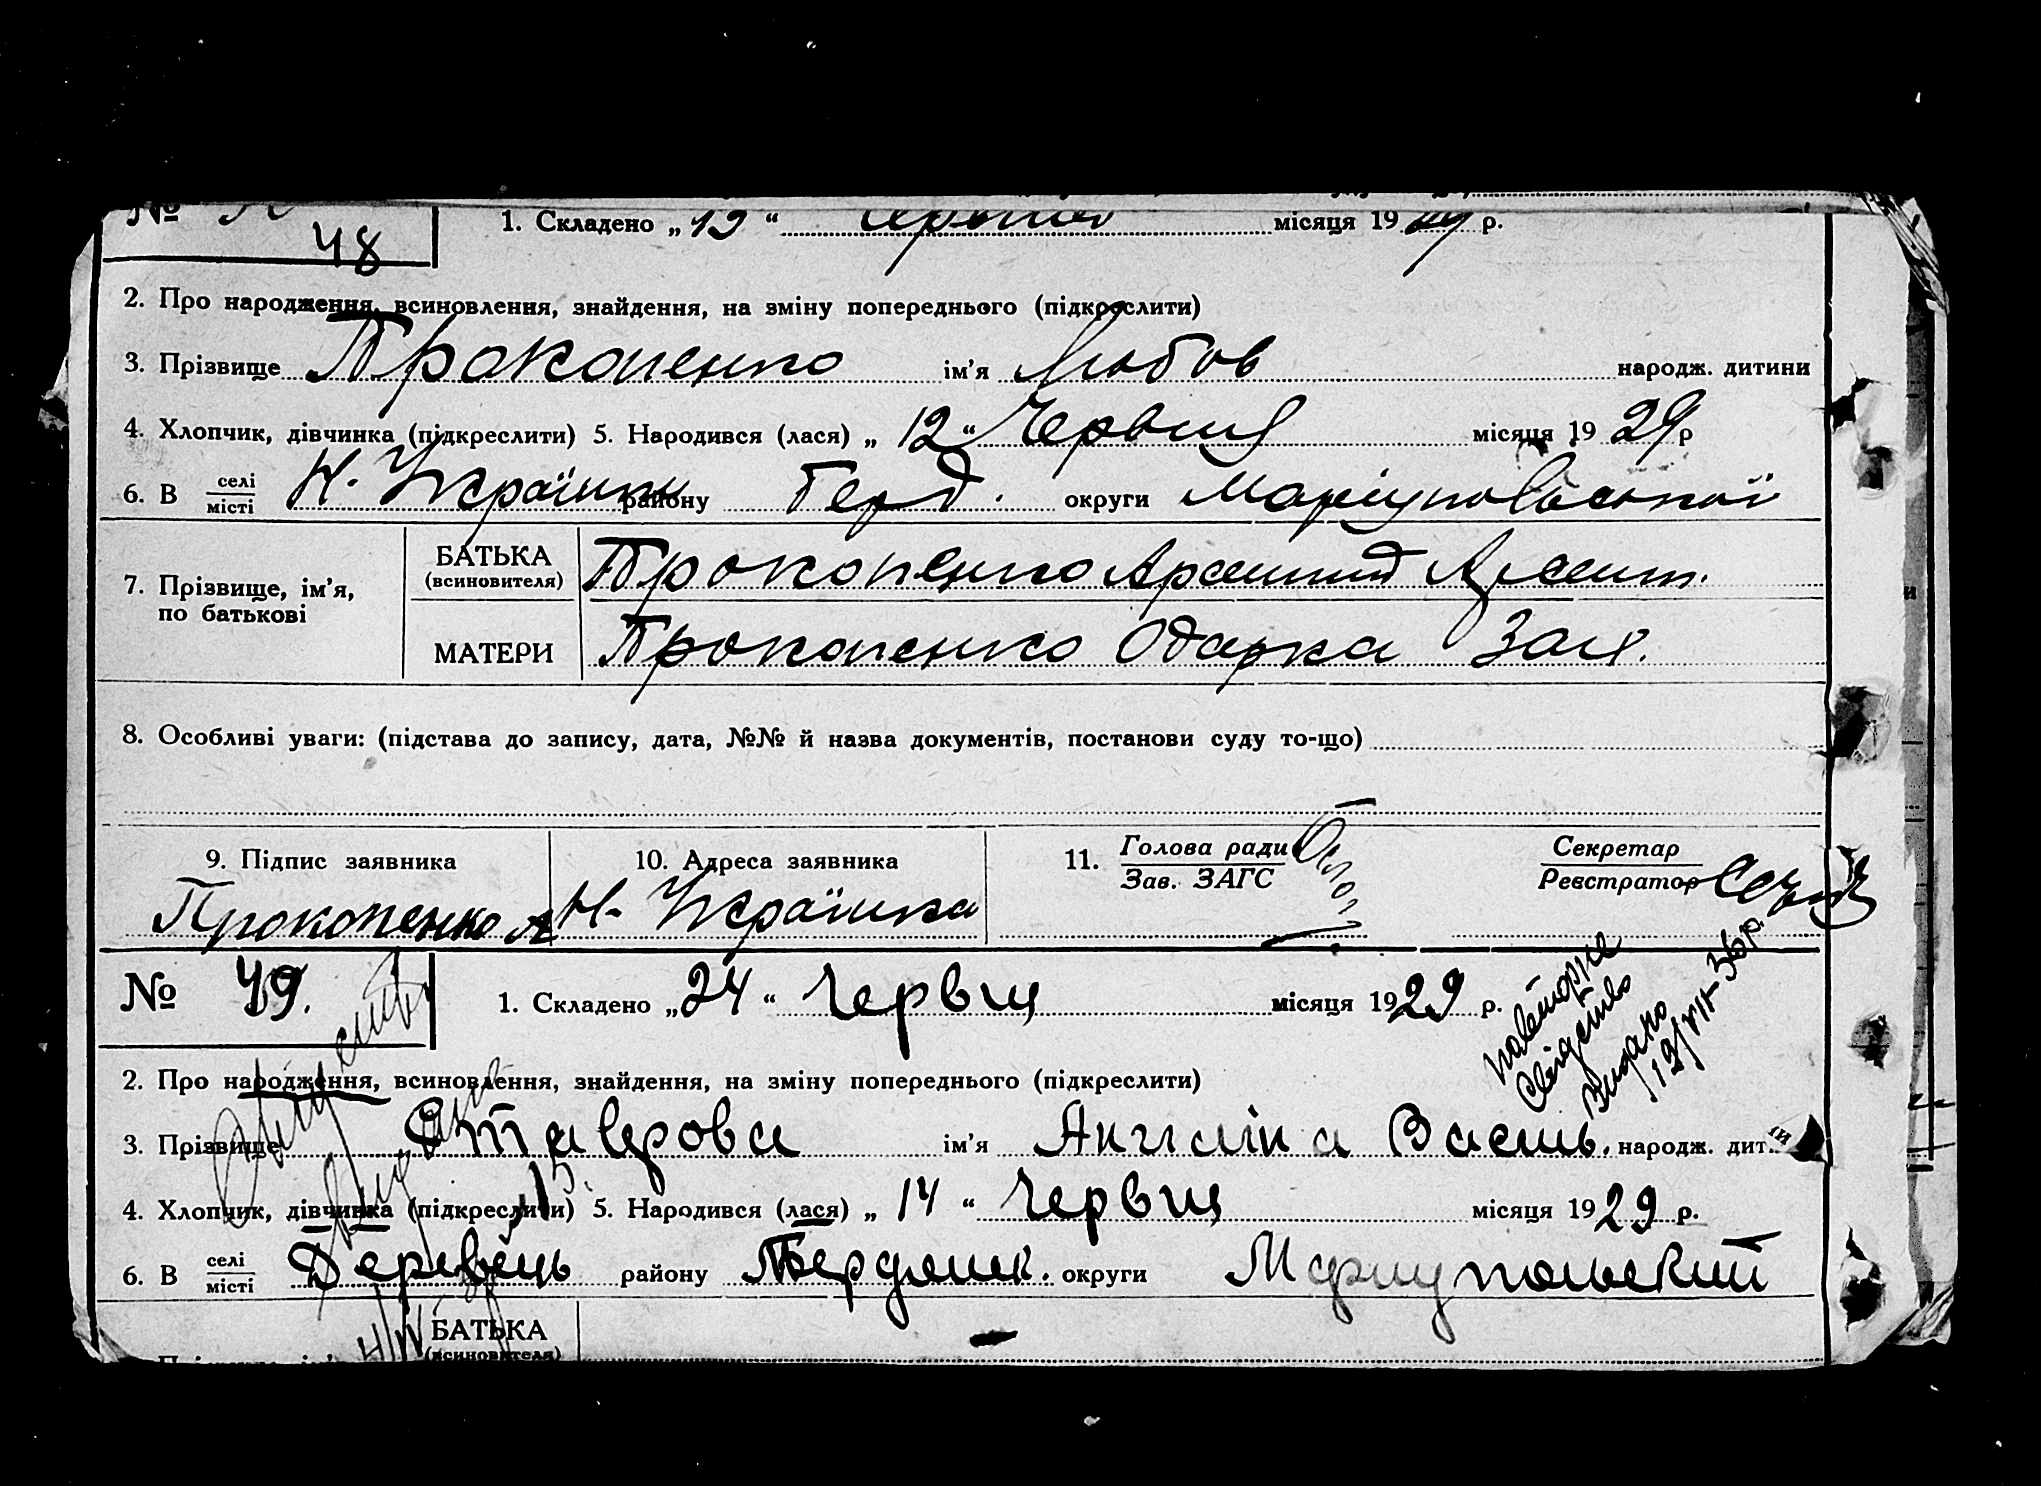 № 48
1. Складено „ 19 “ Червня місяця 1929 р.
2. Про народження, всиновлення, знайдення, на зміну попереднього (підкреслити)
3. Прізвище Прокопенко ім'я Любов народж. дитини
4. Хлопчик, дівчинка (підкреслити) 5. Народився (лася) „ 12 “ Червця місяця 1929 р
6. В селі місті Н. Українки району Берд. округи Маріупольської
7. Прізвище, ім'я, по батькові
БАТЬКА (всиновителя) Прокопенко Арсентий
МАТЕРИ Прокопенко Одарка Зах.
8. Особливі уваги: (підстава до запису, дата, №№ й назва документів, постанови суду то-що)
9. Підпис заявника 10. Адреса заявника 11. Голова ради Зав. ЗАГС Секретар Реєстратор
Прокопенко А Н. Українка
№ 49.
1. Складено „ 24 “ Червця місяця 1929 р.
повторне
свідотство
видано
19/VII-36р.
2. Про народження, всиновлення, знайдення, на зміну попереднього (підкреслити)
3. Прізвище ім'я Ангеліна Василь. народж. дит
4. Хлопчик, дівчинка (підкреслити) 5. Народився (лася) „ 14 “ Червця місяця 1929 р.
6. В селі місті району Бердянск. округи Мариупольский
БАТЬКА
(всиновителя)